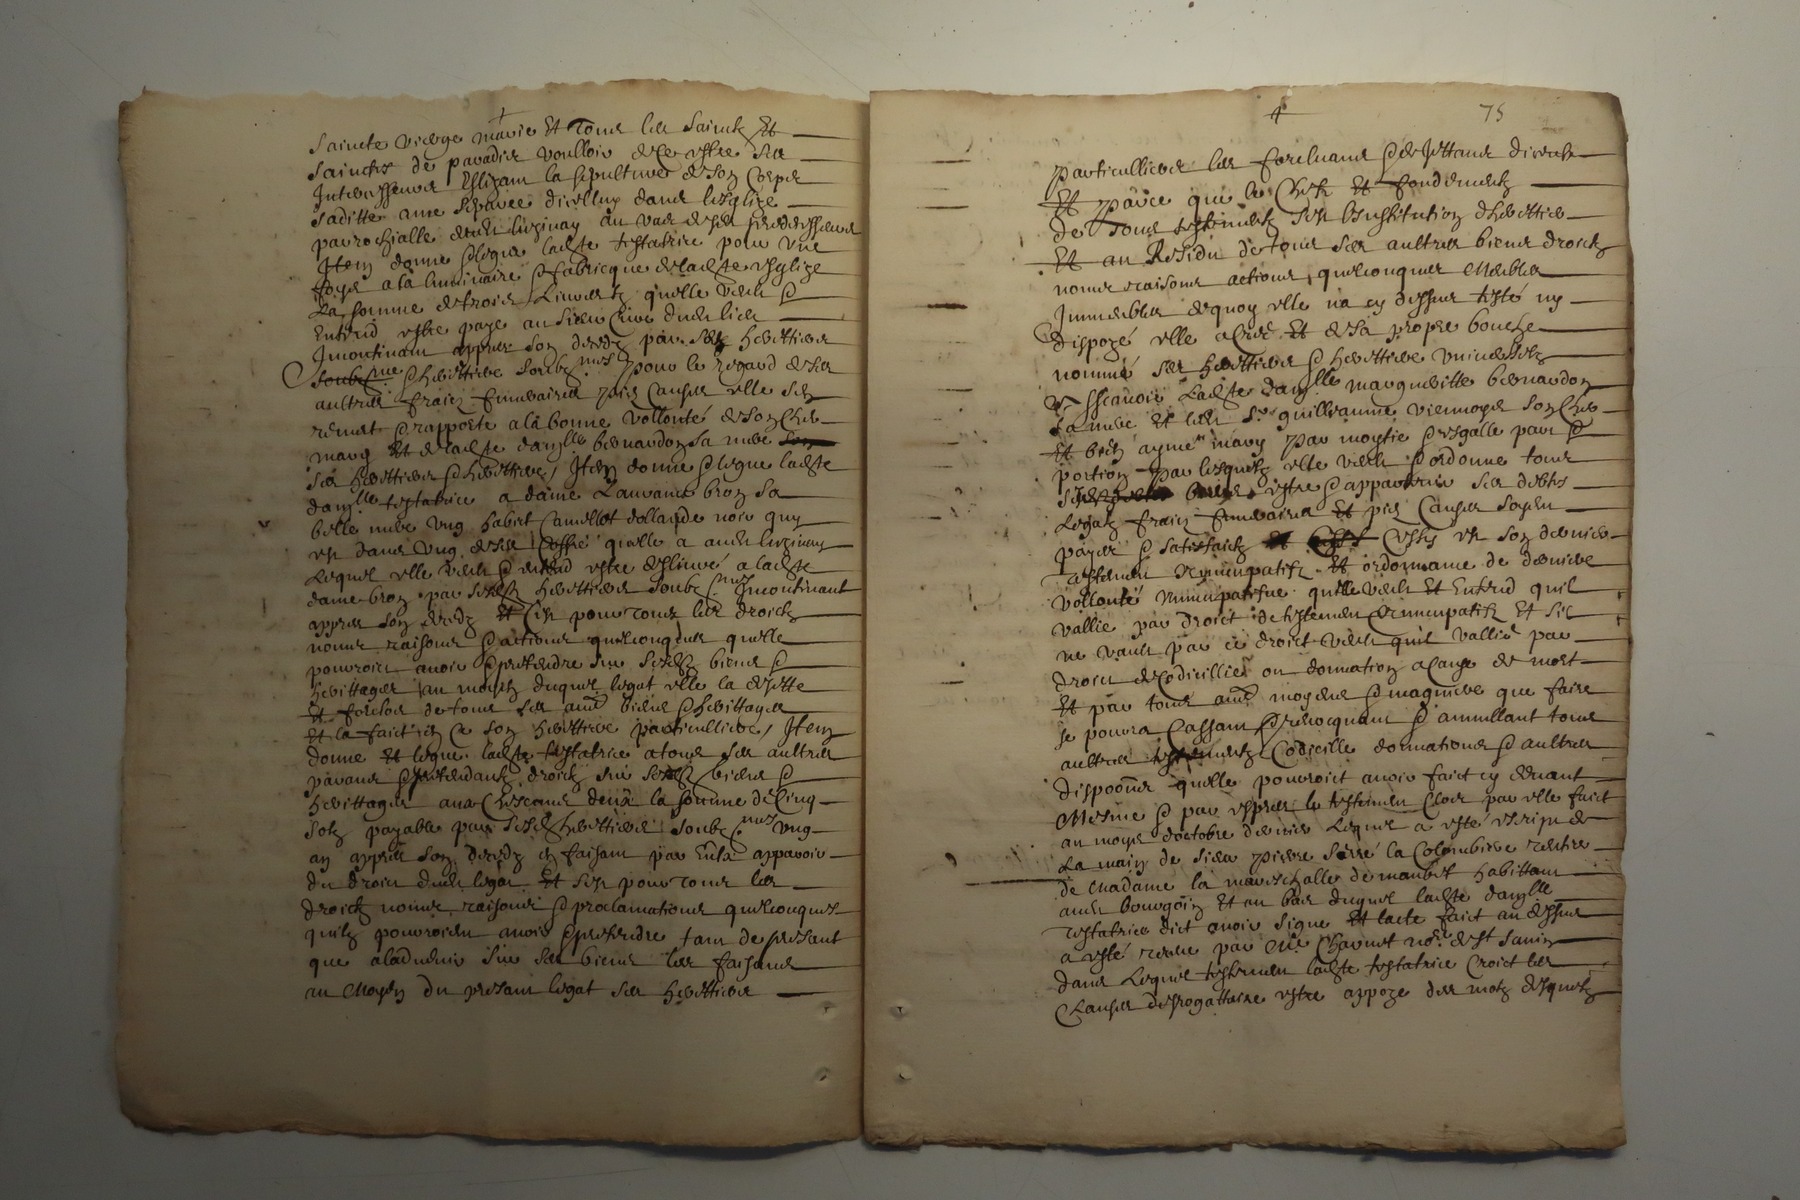 Saincte vierge marie Et tous les Sainctz Et
Sainctes de paradis voulloir Estre ses
Intercesseurs Eslizant la sepulture de son Corps
Saditte ame séparée dicelluy dans lesglize
parrochialle dudit luzinay au vas de ses predecesseurs
Item donne & legue ladite testatrice pour une
foys a la luminaire & fabricque de ladite esglize
La somme de trois Livres tz quelle veult &
Entend estre paye au sieur Cure dudit lieu
Incontinant appres son decedz par ses herittiers
& herittiere soubz nes pour le regard de ses
aultres fraiz funeraires pies Causes elle sen
remet & rapporte a la bonne vollonté de son cher
mary Et de ladite damlle bernardon sa mere
ses herittiers & herittiere / Item donne & legue ladite
damlle testatrice a dame bron sa
belle mere ung habit Camellot dollande noir quy
est dans ung de ses Coffre quelle a audit luzinay
Lequel elle veult & entend estre deslivré a ladite
dame bron par sesdz herittiers soubz nes Incontinant
appres son decedz Et Cest pour tous les droictz
noms raisons & actions quelconques quelle
pourroit avoir & pretendre sur sesdz biens &
herittages au moyen duquel legat elle la dejette
Et forclos de tous ses aues biens & herittages
Et la faict en Ce son herittiere particulliere / Item
donne Et legue ladite testatrice a tous ses aultres
parans & pretendantz droictz sur sesdz biens &
herittages aux Chescuns deux la somme de Cinq
solz payable par sesdz herittiers soubz nes ung
an appres son decedz en faisant par Eulx apparoir
du droict dudit legat Et Cest pour tous les
droictz noms raisons & proclamations quelconques
quilz pourroient avoir & pretendre tant de present
que a ladvenir sur ses biens les faisans
au Moyen du present legat ses herittiers
75
particulliers les forcluans & dejettans
Et parce que le Chef Et fondement
de tous testementz est linstitution dherittier
Et au Residu de tous ses aultres biens droictz
noms raisons actions quelconques Meubles
Immeubles de quoy elle na cy dessus testé ny
dispozé elle a Creé Et de sa propre bouche
nommé ses herittiers & herittiere universelz
Assçavoir Ladite damlle margueritte bernardon
sa mere Et ledit sr guilliaume viennoys son cher
Et bien aymé mary Par moytie & esgalle part &
portion Par lesquelz elle veult & ordonne tous
estre & apparroir ses debtes
Legatz fraiz funeraires Et pies Causes soyent
payes & satisfaictz Cest est son dernier
testement nuncupatifz Et ordonnance de derniere
vollonté nuncupatifve quelle veult Et Entend quil
vallie par droict de testement nuncupatifz Et sil
ne vault par ce droict veult quil vallie par
droict de Codicillie ou donnation a Cause de mort
Et par tous aues moyens & magniere que faire
se pourra Cassant & revocquant & annullant tous
aultres testementz Codicille donnations & aultres
dispoons quelle pourroit avoir faict cy devant
Mesme & par expres le testement Clos par elle faict
au moys doctobre dernier Lequel a esté escript de
La main de sieur pierre serré la Colombiere
de Madame la mareschalle de habittant
audit bourgoin Et au bas duquel ladite damlle
testatrice dict avoir signe Et lacte faict au dessus
a esté receu par Me Charvet nore de st savin
dans Lequel testement ladite testatrice Croict les
Clauses desrogattoire estre appoze des motz desquelz